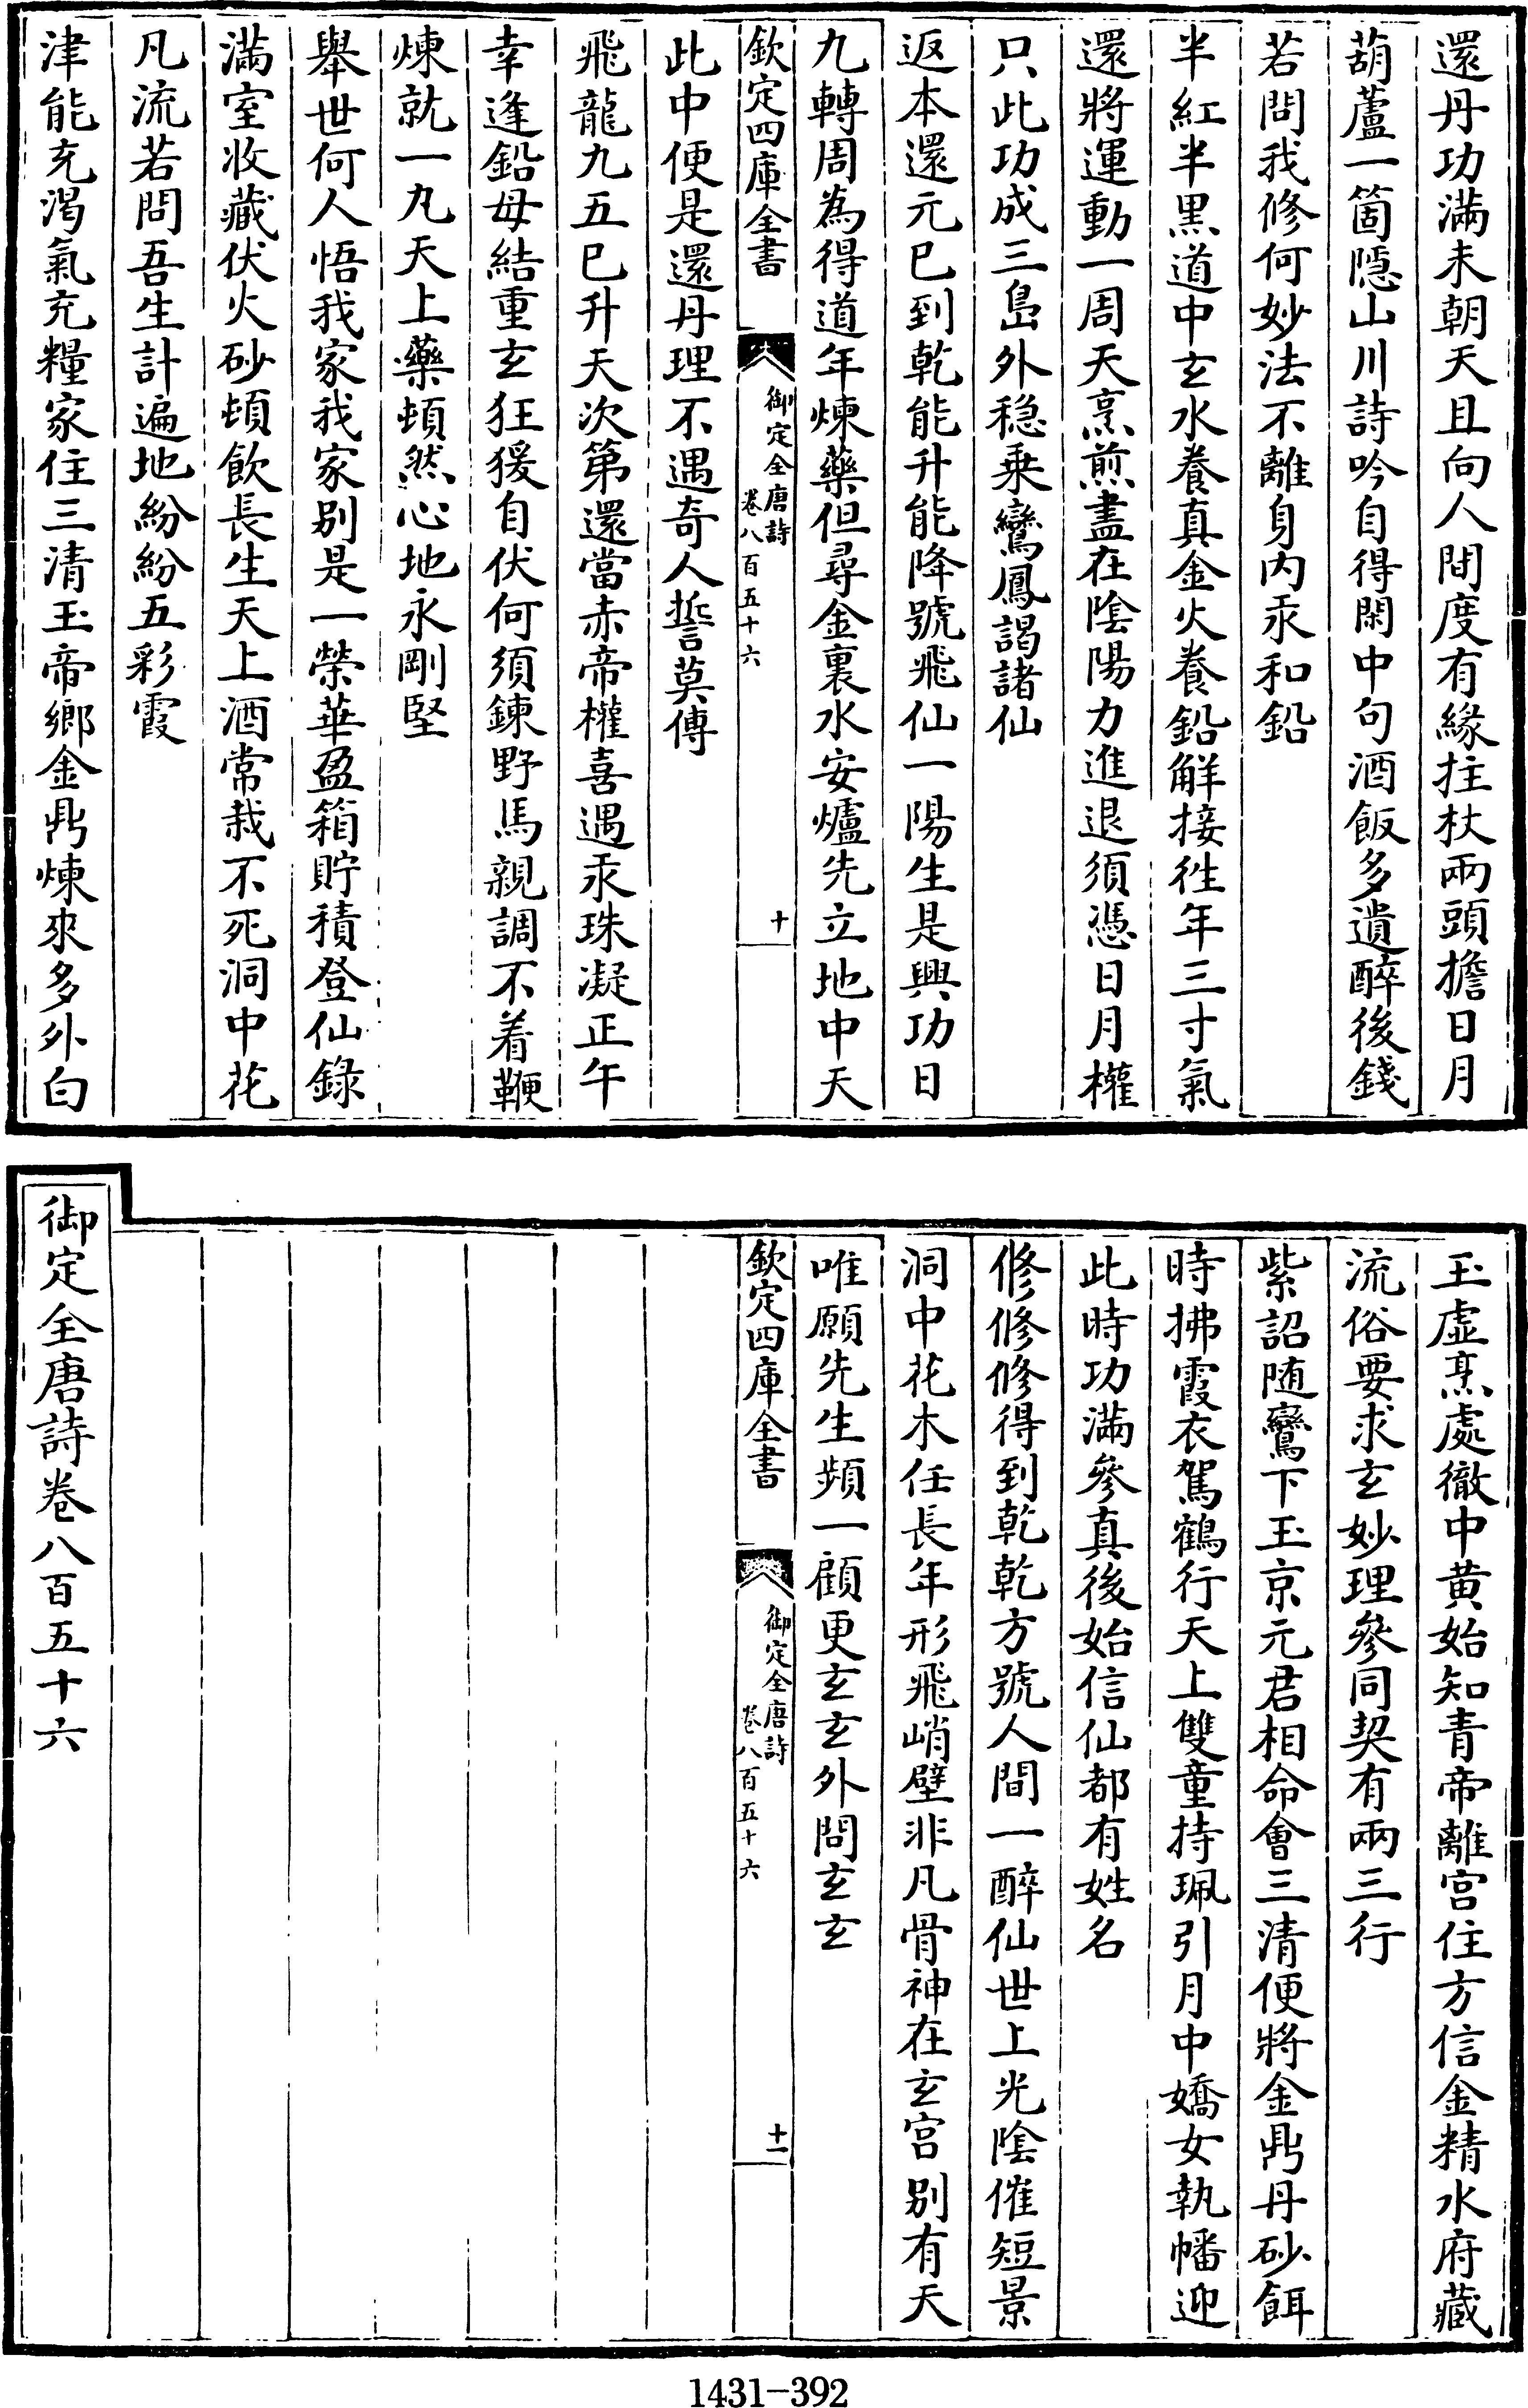 還丹功滿未朝天且向人間度有緣拄杖兩頭擔日月
葫蘆一箇隱山川詩吟自得閑中句酒飯多遺醉後錢
若問我修何妙法不離身内汞和鉛
半紅半黑道中玄水養真金火養鉛解接徃年三寸氣
還將運動一周天烹煎盡在陰陽力進退須憑日月權
只此功成三島外穏乗鸞鳳謁諸仙
返本還元已到乾能升能降號飛仙一陽生是興功日
九轉周為得道年煉藥但尋金裏水安爐先立地中天
欽定四庫全書
御定全唐詩
卷八百五十六
十
此中便是還丹理不遇奇人誓莫傳
飛龍九五已升天次第還當赤帝權喜遇汞珠凝正午
幸逢鉛母結重玄狂猨自伏何須鍊野馬親調不着鞭
煉就一九天上藥頓然心地永剛堅
舉世何人悟我家我家别是一榮華盈箱貯積登仙錄
滿室收藏伏火砂頓飲長生天上酒常栽不死洞中花
凡流若問吾生計遍地紛紛五彩霞
津能充渴氣充糧家住三清玉帝鄉金鼎煉來多外白
玉虚烹處徹中黄始知青帝離宫住方信金精水府藏
流俗要求玄妙理參同契有兩三行
紫詔随鸞下玉京元君相命會三清便將金鼎丹砂餌
時拂霞衣駕鶴行天上雙童持珮引月中嬌女執幡迎
此時功滿參真後始信仙都有姓名
修修修得到乾乾方號人間一醉仙世上光陰催短景
洞中花木任長年形飛峭壁非凡骨神在玄宫别有天
唯願先生頻一顧更玄玄外問玄玄
欽定四庫全書
御定全唐詩
卷八百五十六
十一
御定全唐詩卷八百五十六
1431-392